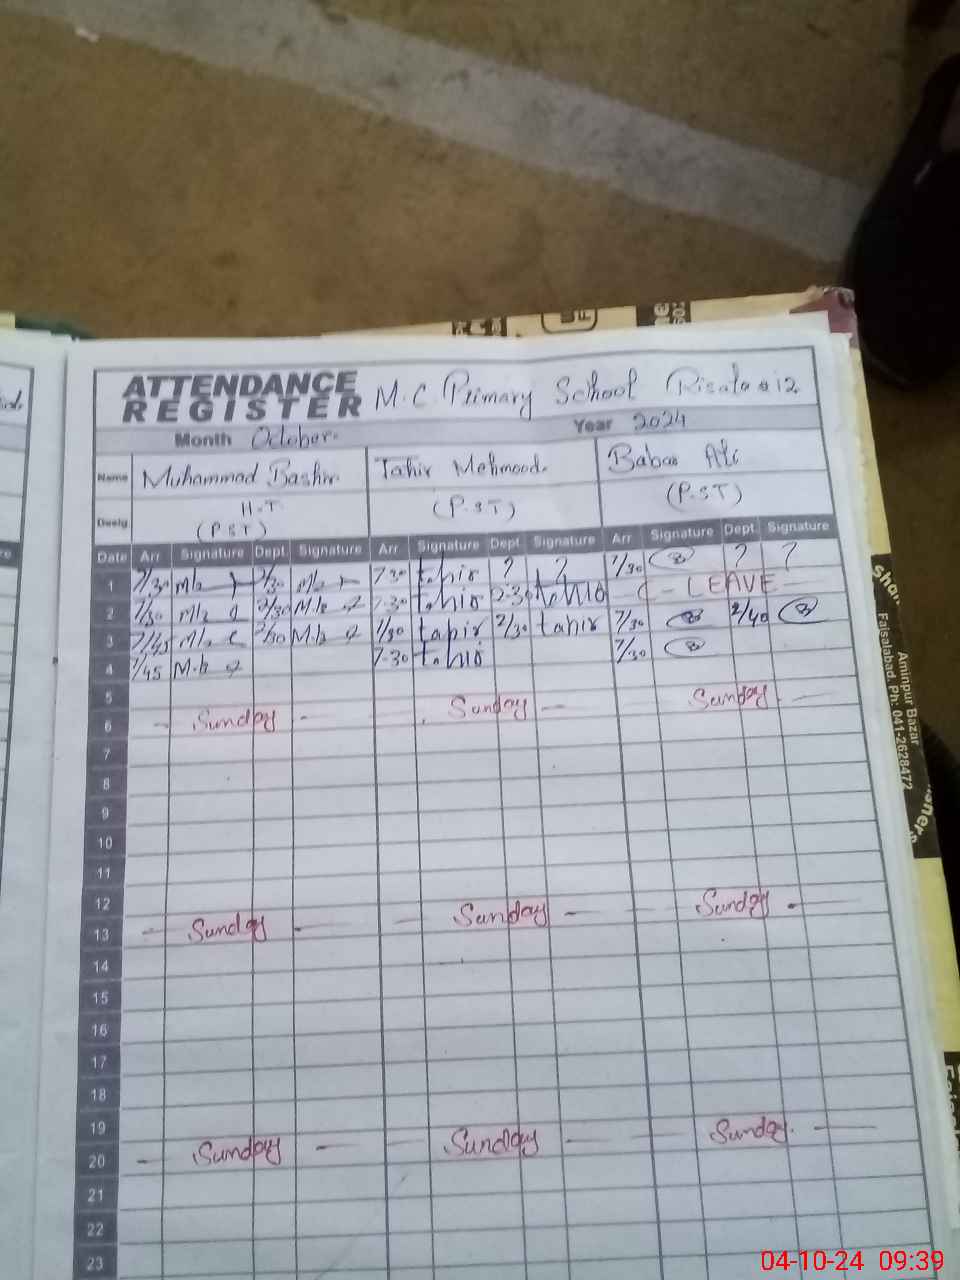 ATTENDANCE REGISTER M.C. Primary School Risala #12
Month October. Year 2024
Name Muhammad Bashir. Tahir Mehmood. Babar Ali
Desig H.T. (PST) (P.S.T) (P.S.T)
Date Arr Signature Dept. Signature Arr Signature Dept. Signature Arr Signature Dept. Signature
1 7/30 7/30 7-30 tahir ? ? 7/30 ? ?
2 7/30 2/30 7-30 tahir 2-30 tahir C - LEAVE
3 7/45 2/30 7/30 tahir 2/30 tahir 7/30 2/40
4 7/45 7-30 tahir 7/30
5
6 - Sunday - Sunday - Sunday -
7
8
9
10
11
12
13 - Sunday - - Sunday - - Sunday -
14
15
16
17
18
19
20 - Sunday - - Sunday - - Sunday. -
21
22
23
Aminpur Bazar
Faisalabad. Ph: 041-2628472
04-10-24 09:39